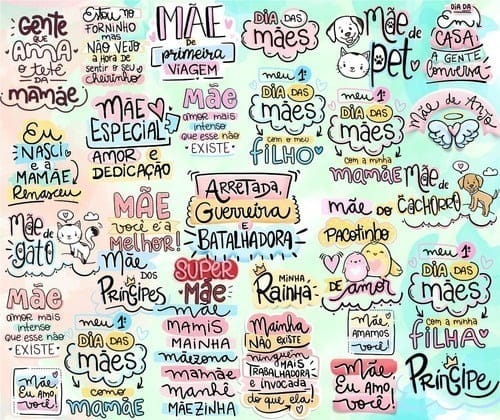 Gente
que
ama
o teté
da
mamãe
Estou no
forninho
mas
não vejo
a hora de
sentir o seu
cheirinho
MÃE
de
primeira
VIAGEM
DIA DAS
mães
Mãe
de
pet
DIA DA
Em
CASA
A GENTE
Conversa
MÃE
ESPECIAL
AMOR e
DEDICAÇÃO
Mãe
amor mais
intenso
que esse não
EXISTE
meu 1º
DIA DAS
mães
com o meu
filho
meu 1º
DIA DAS
mães
com a minha
mamãe
Mãe de Anjo
Eu
NASCI
e a
MAMÃE
Renasceu
MÃE
você é a
MELHOR!
ARRETADA,
Guerreira
E
BATALHADORA
mãe do
Pacotinho
DE amor
Mãe
de
CACHORRO
Mãe
de
gato
Mãe
DOS
Príncipes
SUPER
Mãe
MINHA
Rainha
meu 1º
DIA DAS
mães
com a minha
FILHA
Mãe
amor mais
intenso
que esse não
EXISTE
meu 1º
DIA DAS
mães
como
mamãe
Mãe
MAMIS
MAINHA
mãezona
mamãe
manhê
MÃEZINHA
Mainha
NÃO EXISTE
ninguém
MAIS
TRABALHADORA
e invocada
do que ela!
MÃE
AMAMOS
você!
Mãe
Eu Amo
Você!
Mãe
Eu Amo,
Você!
Príncipe